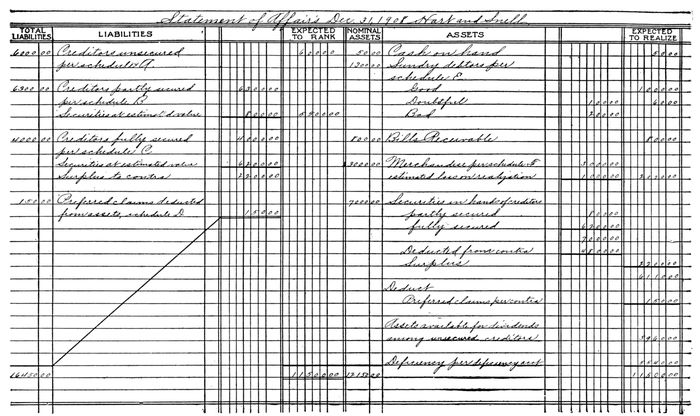 Statement of Affairs Dec. 31, 1908 Hart and Snell
TOTAL LIABILITIES LIABILITIES EXPECTED TO RANK NOMINAL ASSETS ASSETS EXPECTED TO REALIZE
600000 Creditors unsecured 600000 5000 Cash on hand 5000
per schedule A 130000 Sundry debtors per
schedule E
630000 Creditors partly secured 630000 Good 100000
per schedule B Doubtful 10000 6000
Securities at estimated value 80000 550000 Bad 20000
400000 Creditors fully secured 400000 80000 Bills Receivable 80000
per schedule C
Securities at estimated value 620000 300000 Merchandise per schedule F 300000
Surplus to contra 220000 estimated loss on realization 100000 200000
15000 Preferred claims deducted 700000 Securities in hands of creditors
from assets, schedule D 15000 partly secured 80000
fully secured 620000
700000
Deducted from contra 480000
Surplus 220000
611000
Deduct
Preferred claims per contra 15000
Assets available for dividends
among unsecured creditors 596000
Deficiency per deficiency acct 554000
1645000 1150000 1215000 1150000